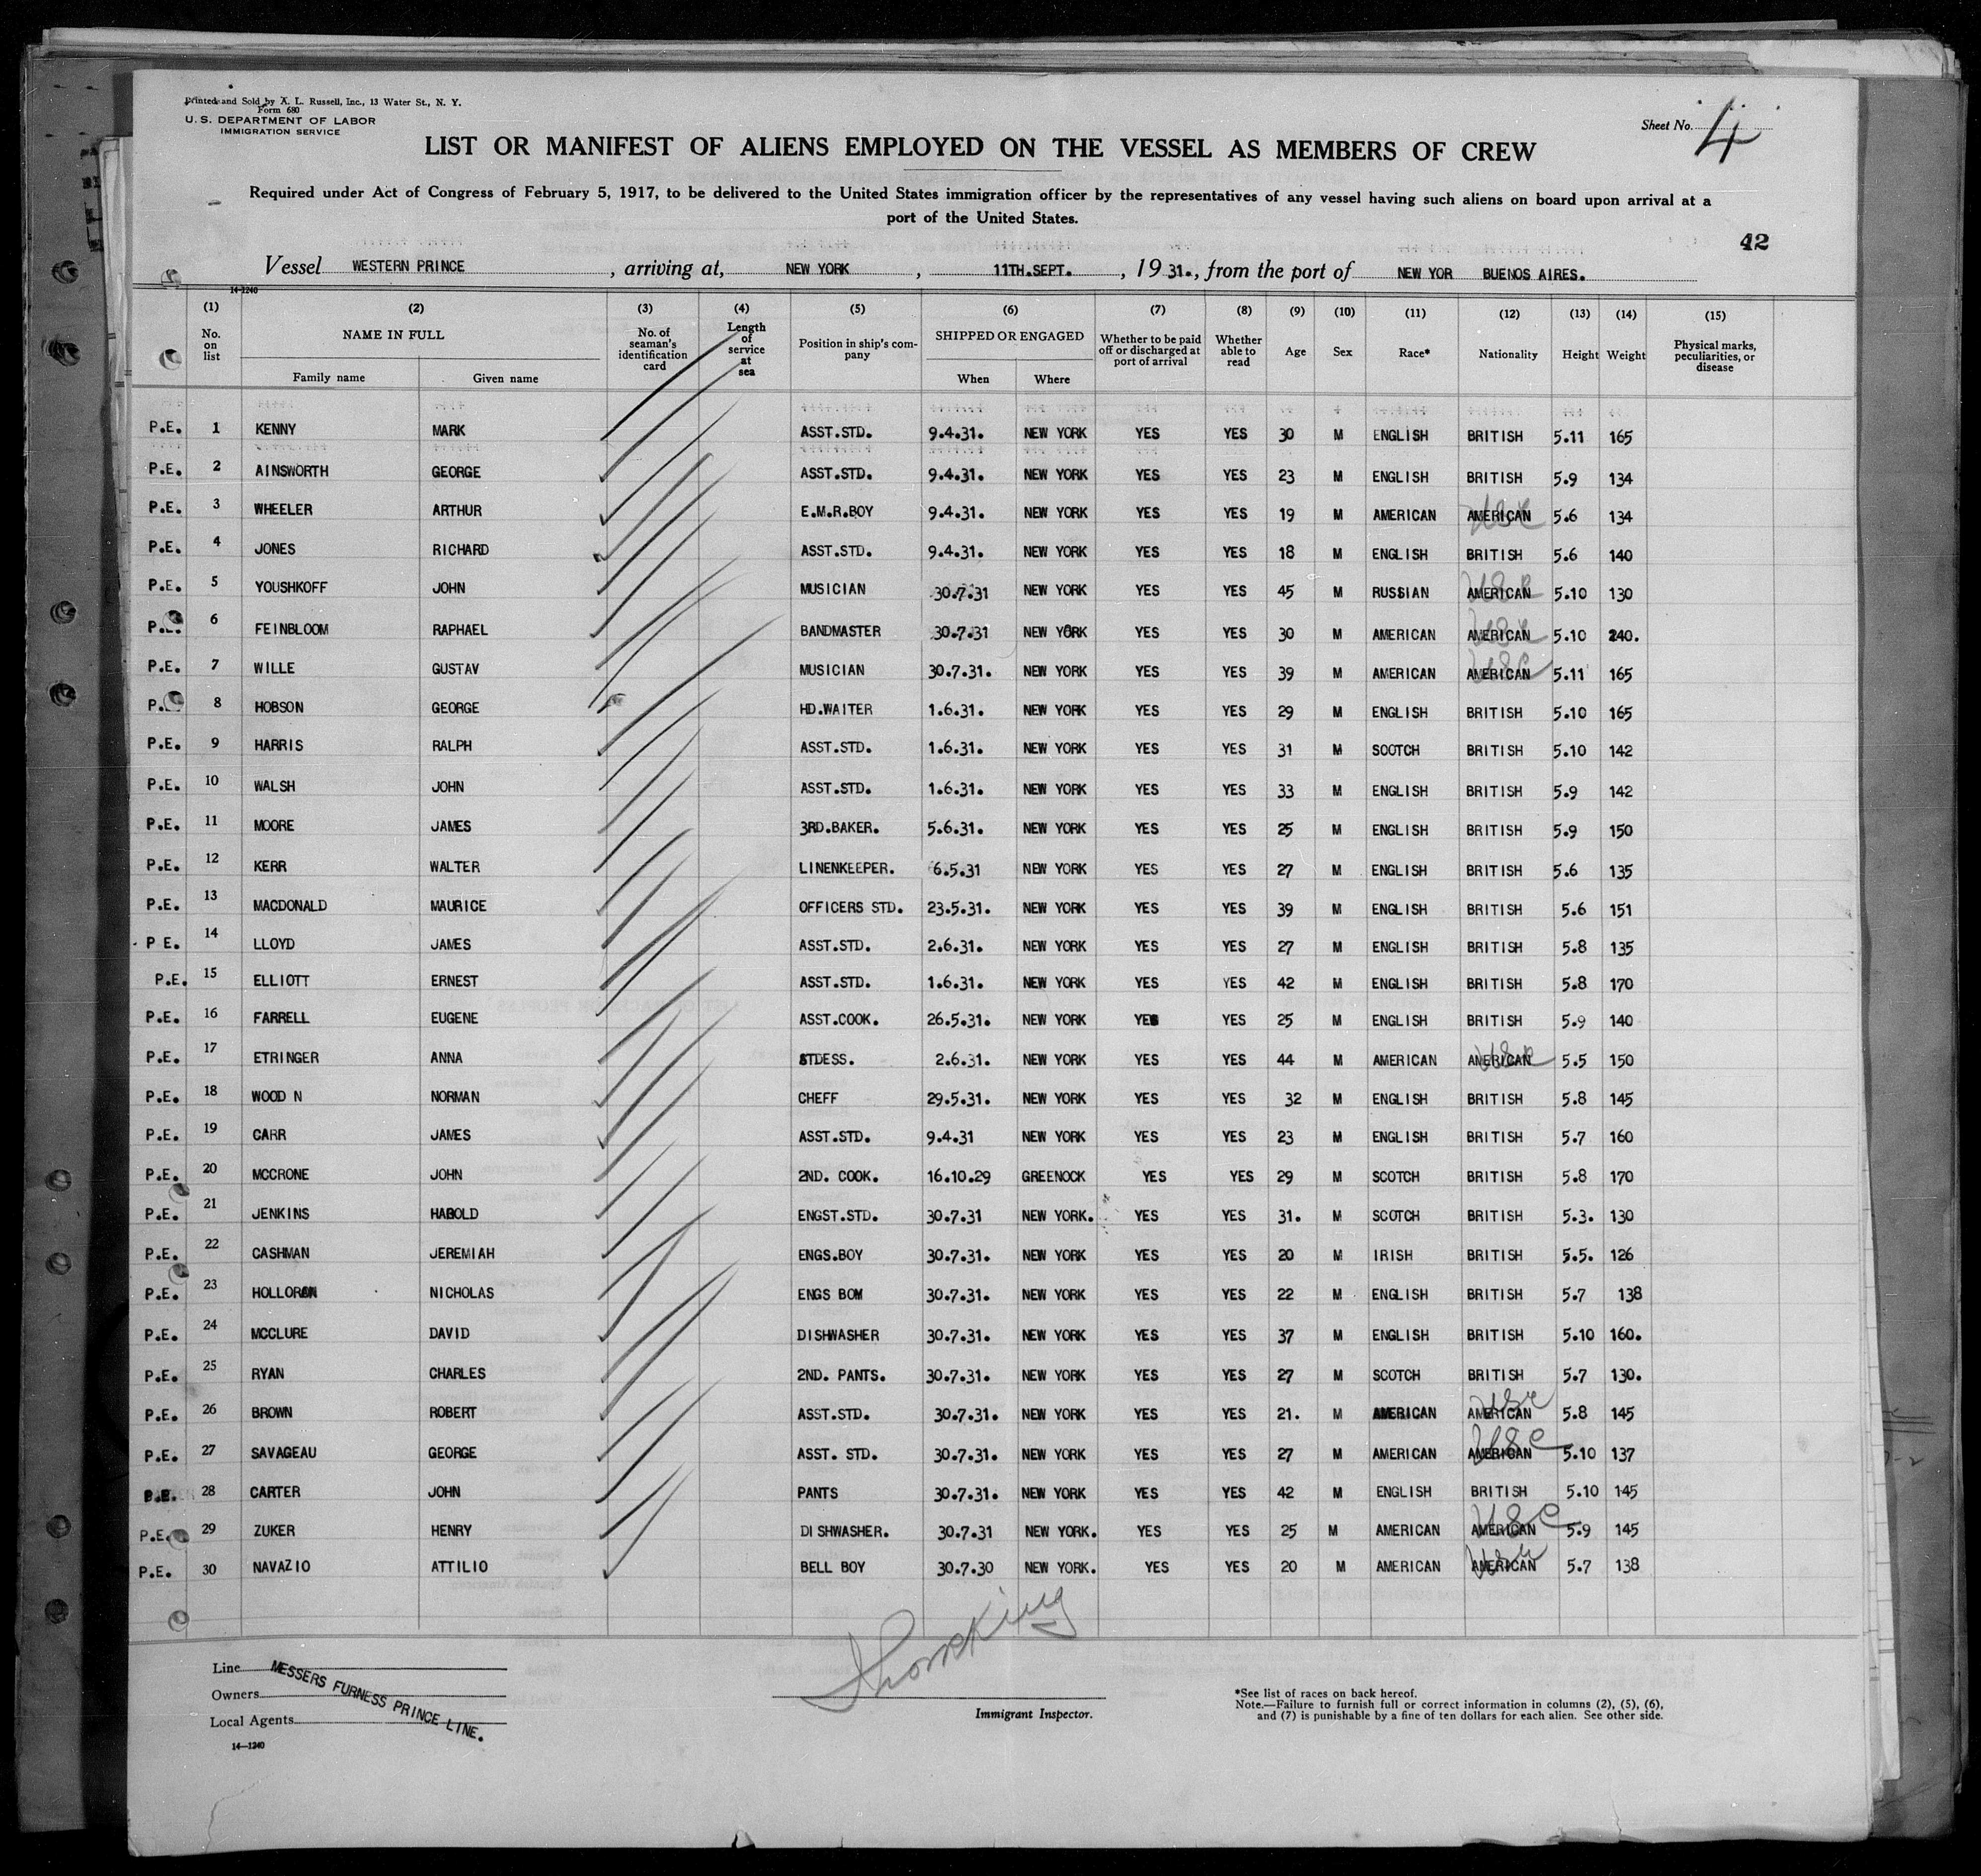 Printed and Sold by A. L. Russell, Inc., 13 Water St., N. Y.
Form 680
U. S. DEPARTMENT OF LABOR
IMMIGRATION SERVICE
Sheet No. 4
LIST OR MANIFEST OF ALIENS EMPLOYED ON THE VESSEL AS MEMBERS OF CREW
Required under Act of Congress of February 5, 1917, to be delivered to the United States immigration officer by the representatives of any vessel having such aliens on board upon arrival at a
port of the United States.
42
Vessel WESTERN PRINCE, arriving at, NEW YORK, 11TH.SEPT., 1931., from the port of NEW YOR BUENOS AIRES.
14-1240
(1) (2) (3) (4) (5) (6) (7) (8) (9) (10) (11) (12) (13) (14) (15)
No. on list NAME IN FULL Family name Given name No. of seaman's identification card Length of service at sea Position in ship's company SHIPPED OR ENGAGED When Where Whether to be paid off or discharged at port of arrival Whether able to read Age Sex Race* Nationality Height Weight Physical marks, peculiarities, or disease
P.E. 1 KENNY MARK ASST.STD. 9.4.31. NEW YORK YES YES 30 M ENGLISH BRITISH 5.11 165
P.E. 2 AINSWORTH GEORGE ASST.STD. 9.4.31. NEW YORK YES YES 23 M ENGLISH BRITISH 5.9 134
P.E. 3 WHEELER ARTHUR E.M.R.BOY 9.4.31. NEW YORK YES YES 19 M AMERICAN AMERICAN USC 5.6 134
P.E. 4 JONES RICHARD ASST.STD. 9.4.31. NEW YORK YES YES 18 M ENGLISH BRITISH 5.6 140
P.E. 5 YOUSHKOFF JOHN MUSICIAN 30.7.31 NEW YORK YES YES 45 M RUSSIAN AMERICAN USC 5.10 130
P.E. 6 FEINBLOOM RAPHAEL BANDMASTER 30.7.31 NEW YORK YES YES 30 M AMERICAN AMERICAN USC 5.10 240.
P.E. 7 WILLE GUSTAV MUSICIAN 30.7.31. NEW YORK YES YES 39 M AMERICAN AMERICAN USC 5.11 165
P. 8 HOBSON GEORGE HD.WAITER 1.6.31. NEW YORK YES YES 29 M ENGLISH BRITISH 5.10 165
P.E. 9 HARRIS RALPH ASST.STD. 1.6.31. NEW YORK YES YES 31 M SCOTCH BRITISH 5.10 142
P.E. 10 WALSH JOHN ASST.STD. 1.6.31. NEW YORK YES YES 33 M ENGLISH BRITISH 5.9 142
P.E. 11 MOORE JAMES 3RD.BAKER. 5.6.31. NEW YORK YES YES 25 M ENGLISH BRITISH 5.9 150
P.E. 12 KERR WALTER LINENKEEPER. 6.5.31 NEW YORK YES YES 27 M ENGLISH BRITISH 5.6 135
P.E. 13 MACDONALD MAURICE OFFICERS STD. 23.5.31. NEW YORK YES YES 39 M ENGLISH BRITISH 5.6 151
P E. 14 LLOYD JAMES ASST.STD. 2.6.31. NEW YORK YES YES 27 M ENGLISH BRITISH 5.8 135
P.E. 15 ELLIOTT ERNEST ASST.STD. 1.6.31. NEW YORK YES YES 42 M ENGLISH BRITISH 5.8 170
P.E. 16 FARRELL EUGENE ASST.COOK. 26.5.31. NEW YORK YES YES 25 M ENGLISH BRITISH 5.9 140
P.E. 17 ETRINGER ANNA STDESS. 2.6.31. NEW YORK YES YES 44 M AMERICAN AMERICAN USC 5.5 150
P.E. 18 WOOD N NORMAN CHEFF 29.5.31. NEW YORK YES YES 32 M ENGLISH BRITISH 5.8 145
P.E. 19 CARR JAMES ASST.STD. 9.4.31 NEW YORK YES YES 23 M ENGLISH BRITISH 5.7 160
P.E. 20 MCCRONE JOHN 2ND. COOK. 16.10.29 GREENOCK YES YES 29 M SCOTCH BRITISH 5.8 170
P.E. 21 JENKINS HAROLD ENGST.STD. 30.7.31 NEW YORK. YES YES 31. M SCOTCH BRITISH 5.3. 130
P.E. 22 CASHMAN JEREMIAH ENGS.BOY 30.7.31. NEW YORK YES YES 20 M IRISH BRITISH 5.5. 126
P.E. 23 HOLLORAN NICHOLAS ENGS BOM 30.7.31. NEW YORK YES YES 22 M ENGLISH BRITISH 5.7 138
P.E. 24 MCCLURE DAVID DISHWASHER 30.7.31. NEW YORK YES YES 37 M ENGLISH BRITISH 5.10 160.
P.E. 25 RYAN CHARLES 2ND. PANTS. 30.7.31. NEW YORK YES YES 27 M SCOTCH BRITISH 5.7 130.
P.E. 26 BROWN ROBERT ASST.STD. 30.7.31. NEW YORK YES YES 21. M AMERICAN AMERICAN USC 5.8 145
P.E. 27 SAVAGEAU GEORGE ASST. STD. 30.7.31. NEW YORK YES YES 27 M AMERICAN AMERICAN USC 5.10 137
P.E. 28 CARTER JOHN PANTS 30.7.31. NEW YORK YES YES 42 M ENGLISH BRITISH 5.10 145
P.E. 29 ZUKER HENRY DISHWASHER. 30.7.31 NEW YORK. YES YES 25 M AMERICAN AMERICAN USC 5.9 145
P.E. 30 NAVAZIO ATTILIO BELL BOY 30.7.30 NEW YORK. YES YES 20 M AMERICAN AMERICAN USC 5.7 138
Line
Owners
Local Agents
MESSERS FURNESS PRINCE LINE.
14-1240
Immigrant Inspector.
*See list of races on back hereof.
Note.—Failure to furnish full or correct information in columns (2), (5), (6),
and (7) is punishable by a fine of ten dollars for each alien. See other side.